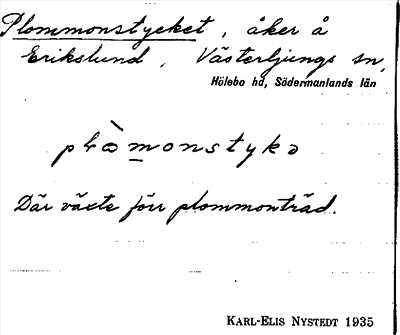 Plommonstycket, åker å
Erikslund, Västerljungs sn,
Hölebo hd, Södermanlands län
plòmonstykə
Där växte förr plommonträd.
KARL-ELIS NYSTEDT 1935